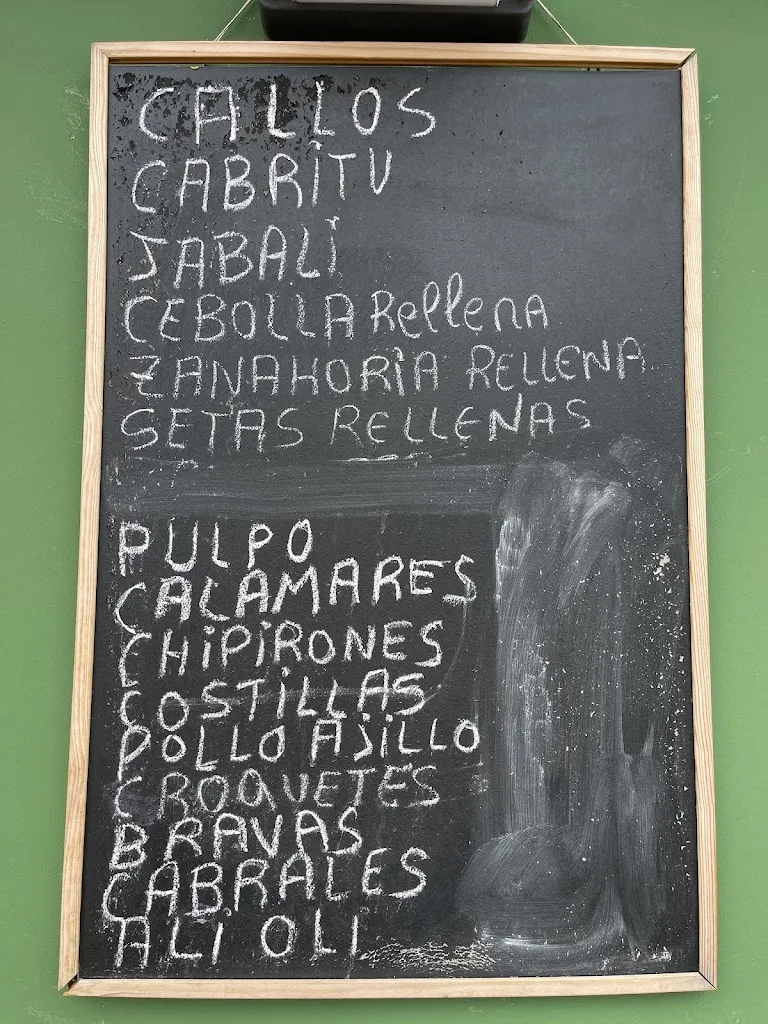 CALLOS
CABRITU
JABALÍ
CEBOLLA Rellena
ZANAHORIA RELLENA
SETAS RELLENAS
PULPO
CALAMARES
CHIPIRONES
COSTILLAS
POLLO AJILLO
CROQUETES
BRAVAS
CABRALES
ALI OLI